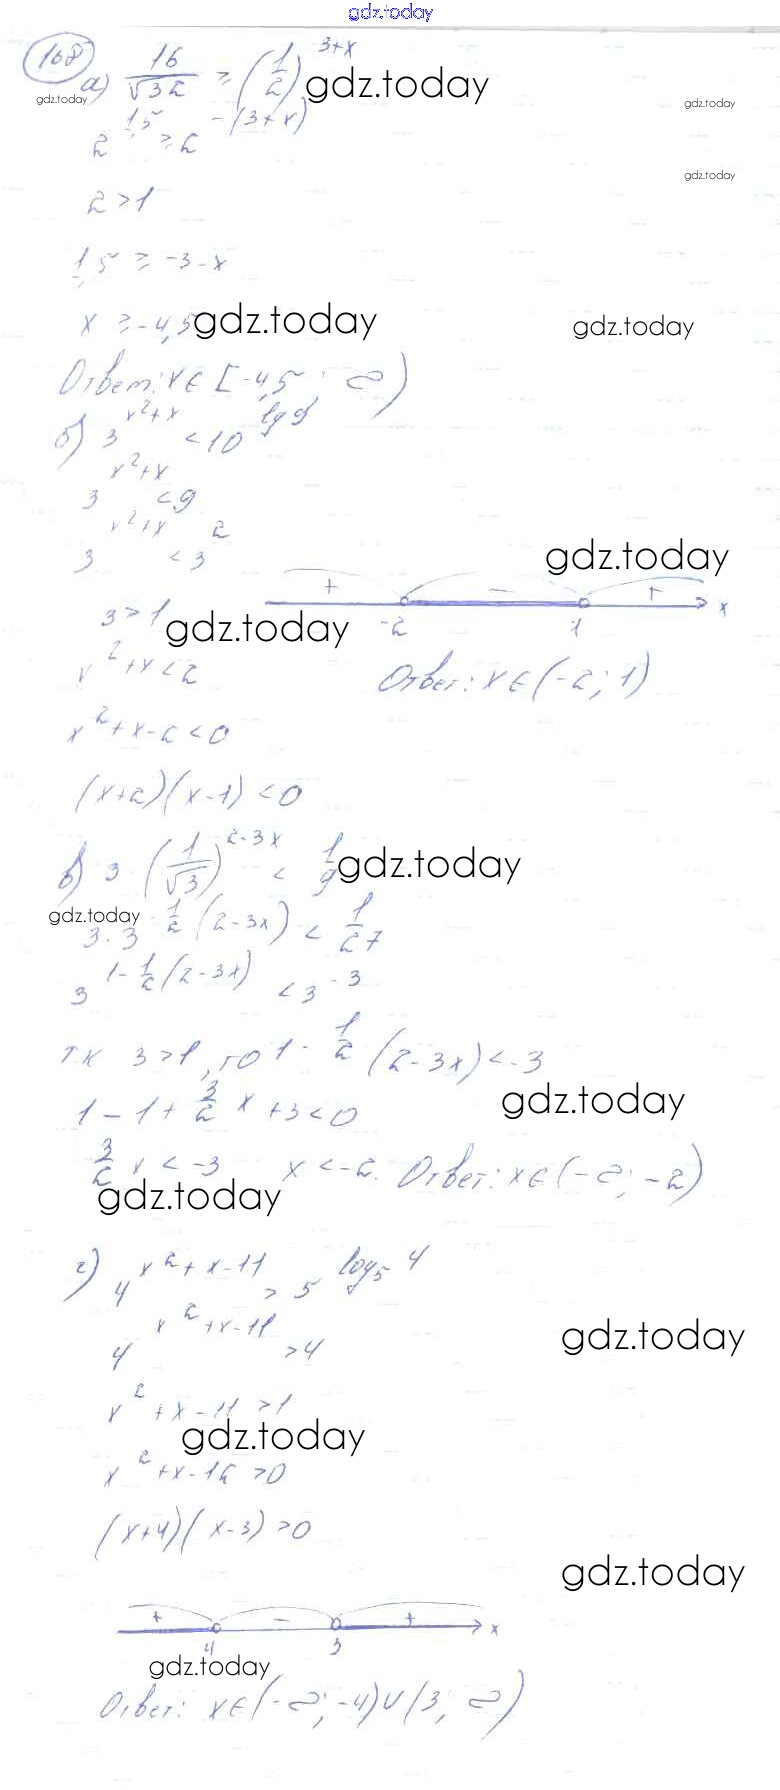 gdz.today
168
а) 16/√32 ≥ (1/2)^(3+x) gdz.today
gdz.today gdz.today
2^1,5 ≥ 2^-(3+x)
gdz.today
2 > 1
1,5 ≥ -3-x
x ≥ -4,5 gdz.today gdz.today
Ответ: x ∈ [-4,5; ∞)
б) 3^(x²+x) < 10^(lg 9)
3^(x²+x) < 9
3^(x²+x) < 3²
gdz.today
+ - +
-2 1 x
3 > 1 gdz.today
x² + x < 2
Ответ: x ∈ (-2; 1)
x² + x - 2 < 0
(x+2)(x-1) < 0
в) 3 · (1/√3)^(2-3x) < 1/9 gdz.today
gdz.today
3·3^(-1/2(2-3x)) < 1/27
3^(1-1/2(2-3x)) < 3^-3
т.к 3 > 1, то 1 - 1/2(2-3x) < -3
gdz.today
1 - 1 + 3/2 x + 3 < 0
3/2 x < -3 x < -2. Ответ: x ∈ (-∞; -2)
gdz.today
г) 4^(x²+x-11) > 5^(log₅ 4)
4^(x²+x-11) > 4 gdz.today
x² + x - 11 > 1
gdz.today
x² + x - 12 > 0
(x+4)(x-3) > 0
gdz.today
+ - +
4 3 x
gdz.today
Ответ: x ∈ (-∞; -4) ∪ (3; ∞)